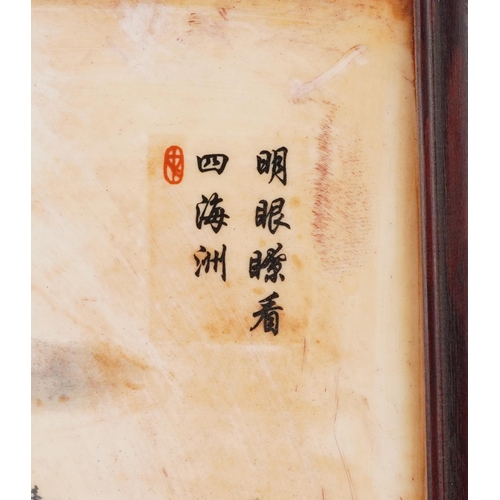 明眼瞭看
四海洲